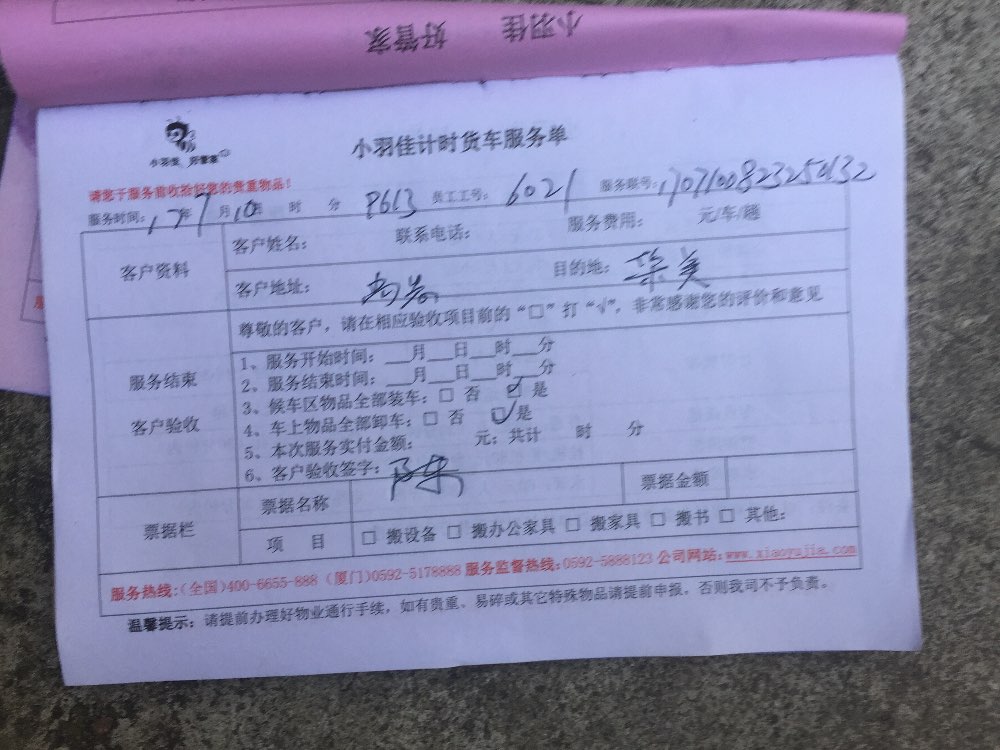 小羽佳 好管家
小羽佳 好管家
小羽佳计时货车服务单
请您于服务前收拾好您的贵重物品!
服务时间: 17年7月10日 时 分 8613 员工工号: 6021 服务账号: 1707100823250132
客户资料
客户姓名: 联系电话: 服务费用: 元/车/趟
客户地址: 目的地: 华美
服务结束
客户验收
尊敬的客户,请在相应验收项目前的“□”打“√”,非常感谢您的评价和意见
1、服务开始时间:___月___日___时___分
2、服务结束时间:___月___日___时___分
3、候车区物品全部装车:□ 否 ☑ 是
4、车上物品全部卸车:□ 否 ☑ 是
5、本次服务实付金额: 元;共计 时 分
6、客户验收签字:
票据栏
票据名称 票据金额
项 目 □ 搬设备 □ 搬办公家具 □ 搬家具 □ 搬书 □ 其他:
服务热线:(全国)400-6655-888 (厦门)0592-5178888 服务监督热线:0592-5888123 公司网站:www.xiaoyujia.com
温馨提示:请提前办理好物业通行手续,如有贵重、易碎或其它特殊物品请提前申报,否则我司不予负责。